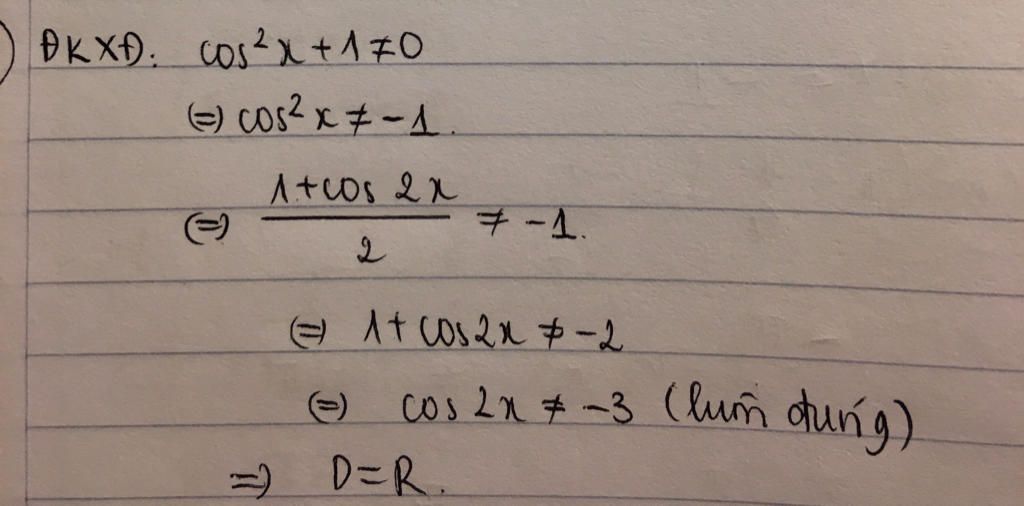 ĐKXĐ: cos²x + 1 ≠ 0
(=) cos²x ≠ -1.
(=) (1 + cos 2x)/2 ≠ -1.
(=) 1 + cos2x ≠ -2
(=) cos 2x ≠ -3 (luôn đúng)
=) D = R.